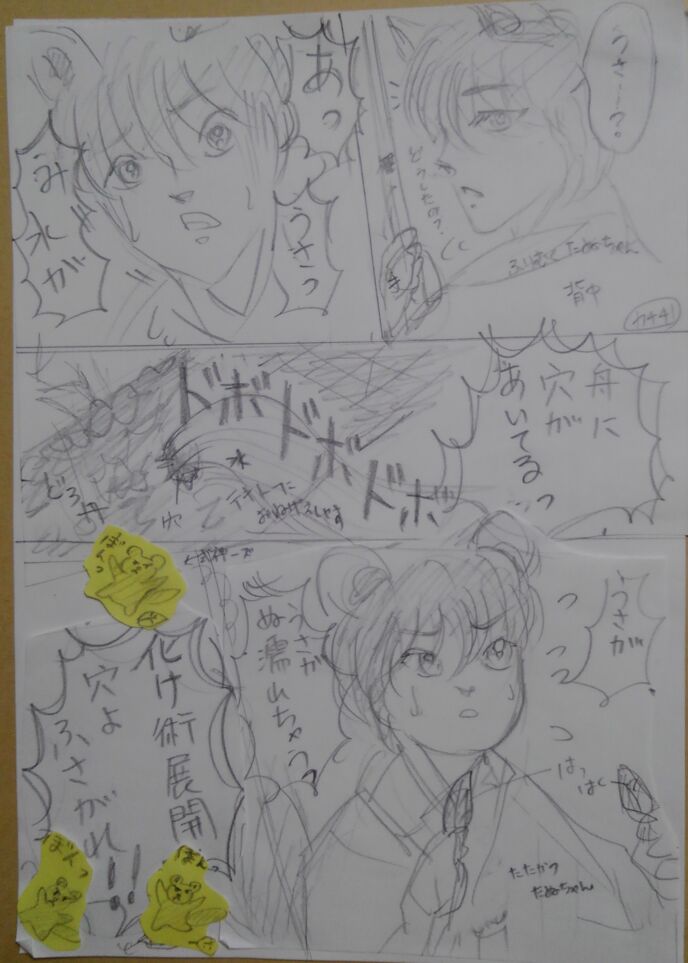 うさー?。
どうしたの?
ふりむくたぬちゃん
背中
カチカチ
あっ
うさっ
み水が
舟に
穴が
あいてるっ
ドボドボドボ
水
テキトーに
おねがいします
穴
どろ舟
うさが
っ
っ
っ
うさが
ぬ濡れちゃう
はっぱ
たたかう
たぬちゃん
式神ーズ
ぽんっ
化け術展開
穴よ
ふさがれ!!
ぽんっ
ぽんっ